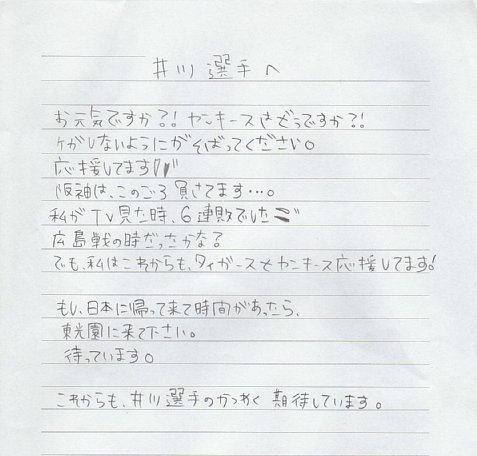 井川選手へ
お元気ですか?! ヤンキースはどうですか?!
ケガしないようにがんばってください。
応援してます!!
阪神は、このごろ負けてます…。
私がTV見た時、6連敗でした
広島戦の時だったかな?
でも、私はこれからも、タイガースとヤンキース応援してます!
もし、日本に帰って来て時間があったら、
東光園に来て下さい。
待っています。
これからも、井川選手のかつやく期待しています。